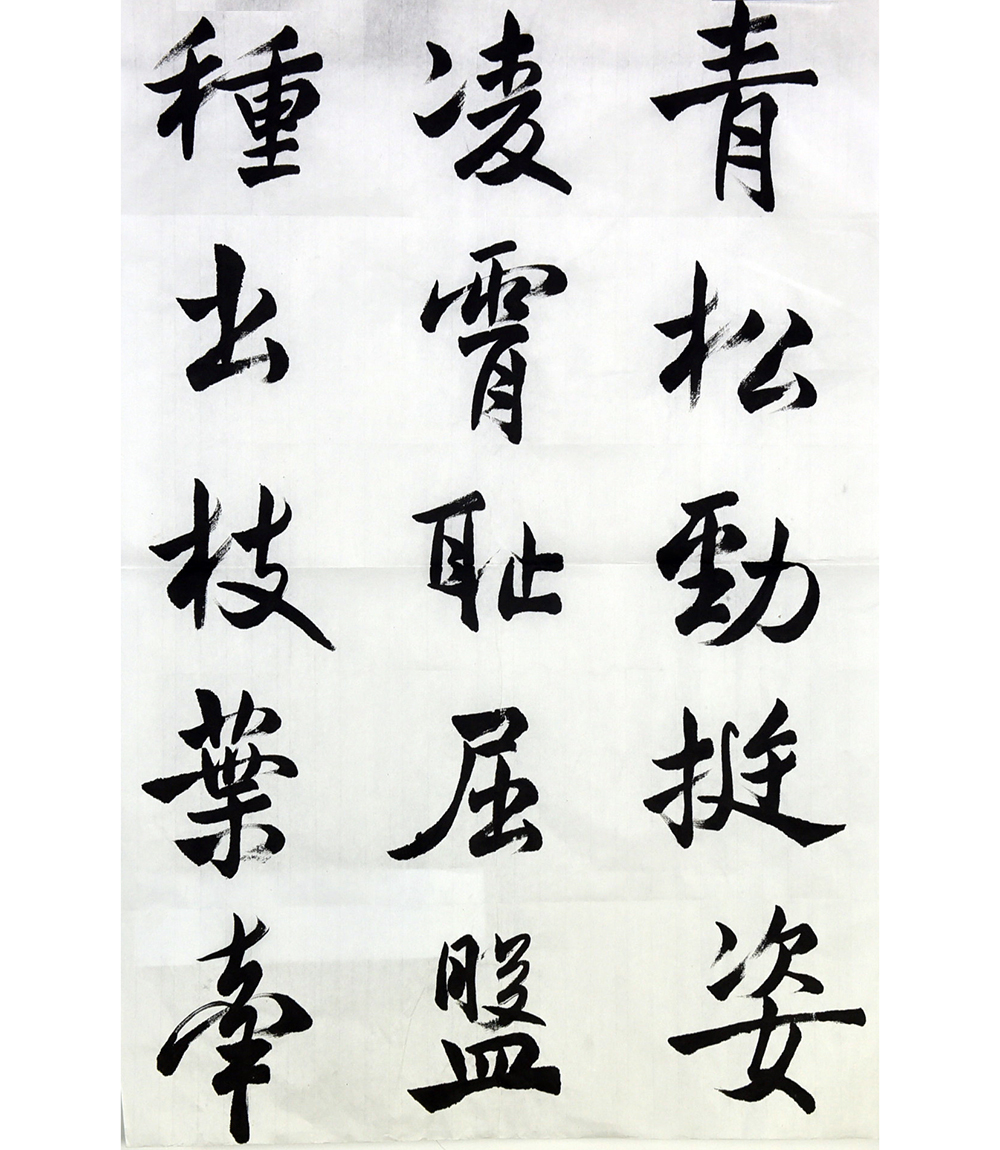 青松勁挺姿
凌霄耻屈盤
種出枝葉牽